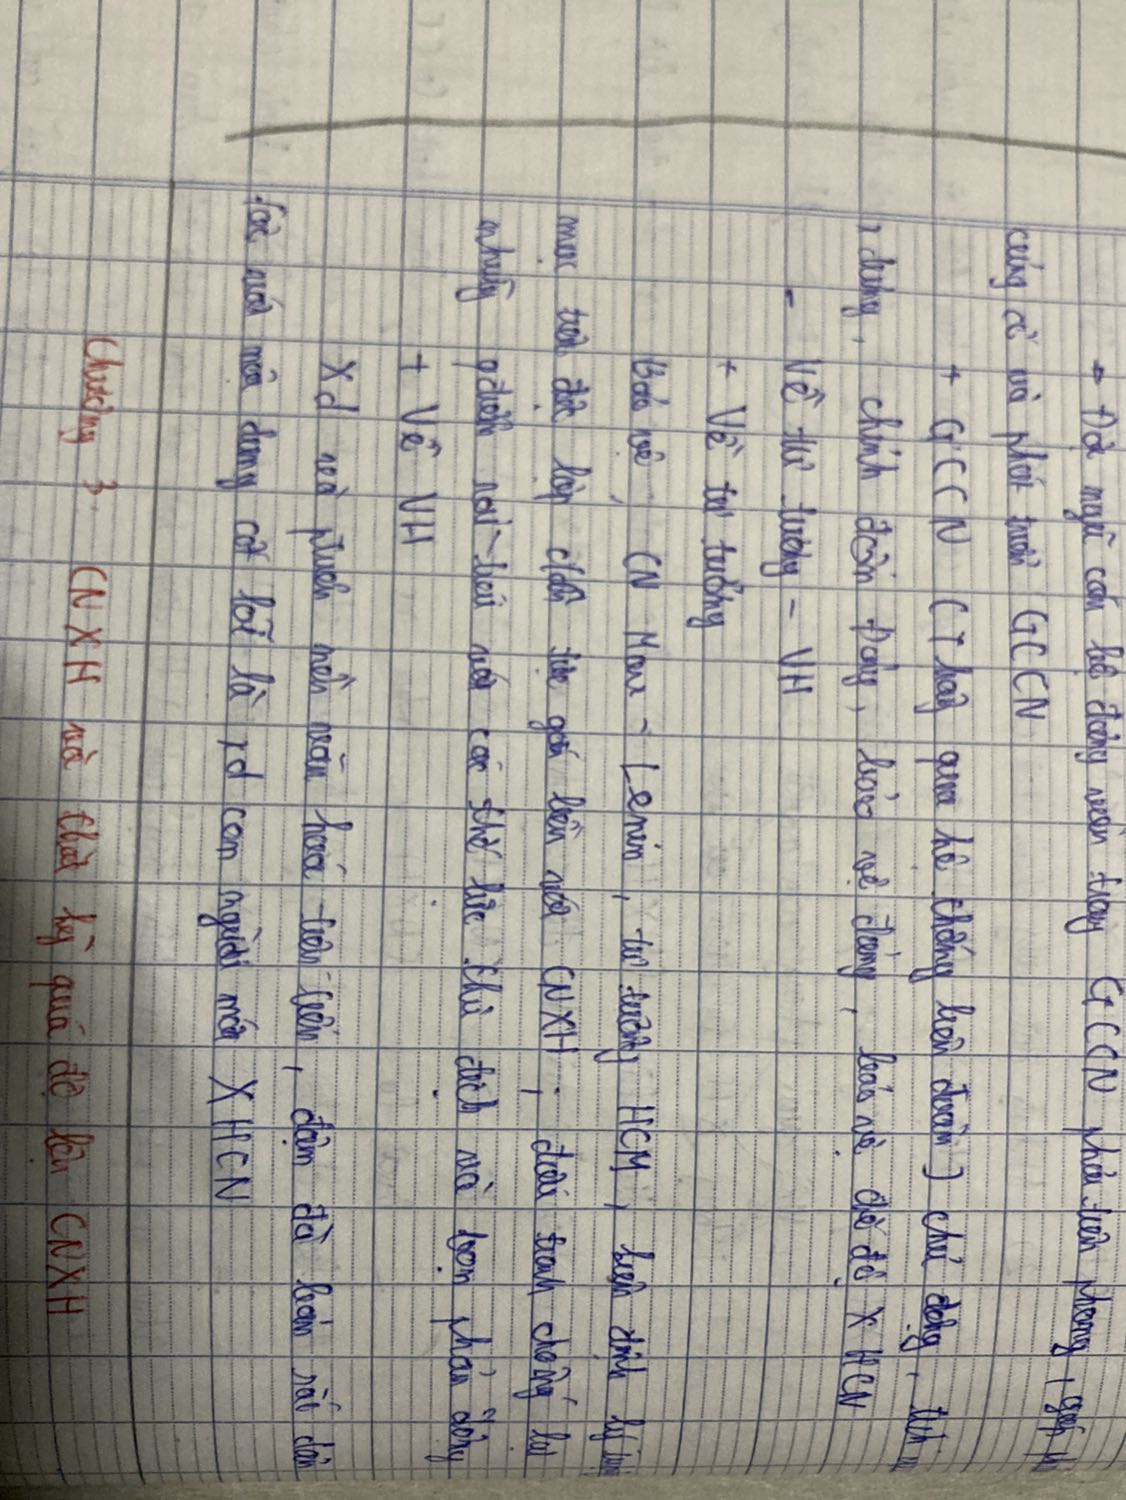 + Đội ngũ cán bộ đảng viên trong GCCN phải tiên phong, góp
củng cố và phát triển GCCN
+ GCCN (Thông qua hệ thống liên đoàn) chủ động, tích
dựng, chỉnh đốn Đảng, bảo vệ đảng, bảo vệ chế độ XHCN
- Về tư tưởng - VH
+ Về tư tưởng
Bảo vệ, CN Mac - Lenin, tư tưởng HCM, kiên định lý tưởng
mục tiêu độc lập dân tộc gắn liền với CNXH, đấu tranh chống lại
những quan với các thế lực thù địch và bọn phản động
+ Về VH
Xd và phát nền văn hoá tiên tiến, đậm đà bản sắc dân
tộc với nội dung cốt lõi là xd con người mới XHCN
Chương 3. CNXH và thời kỳ quá độ lên CNXH